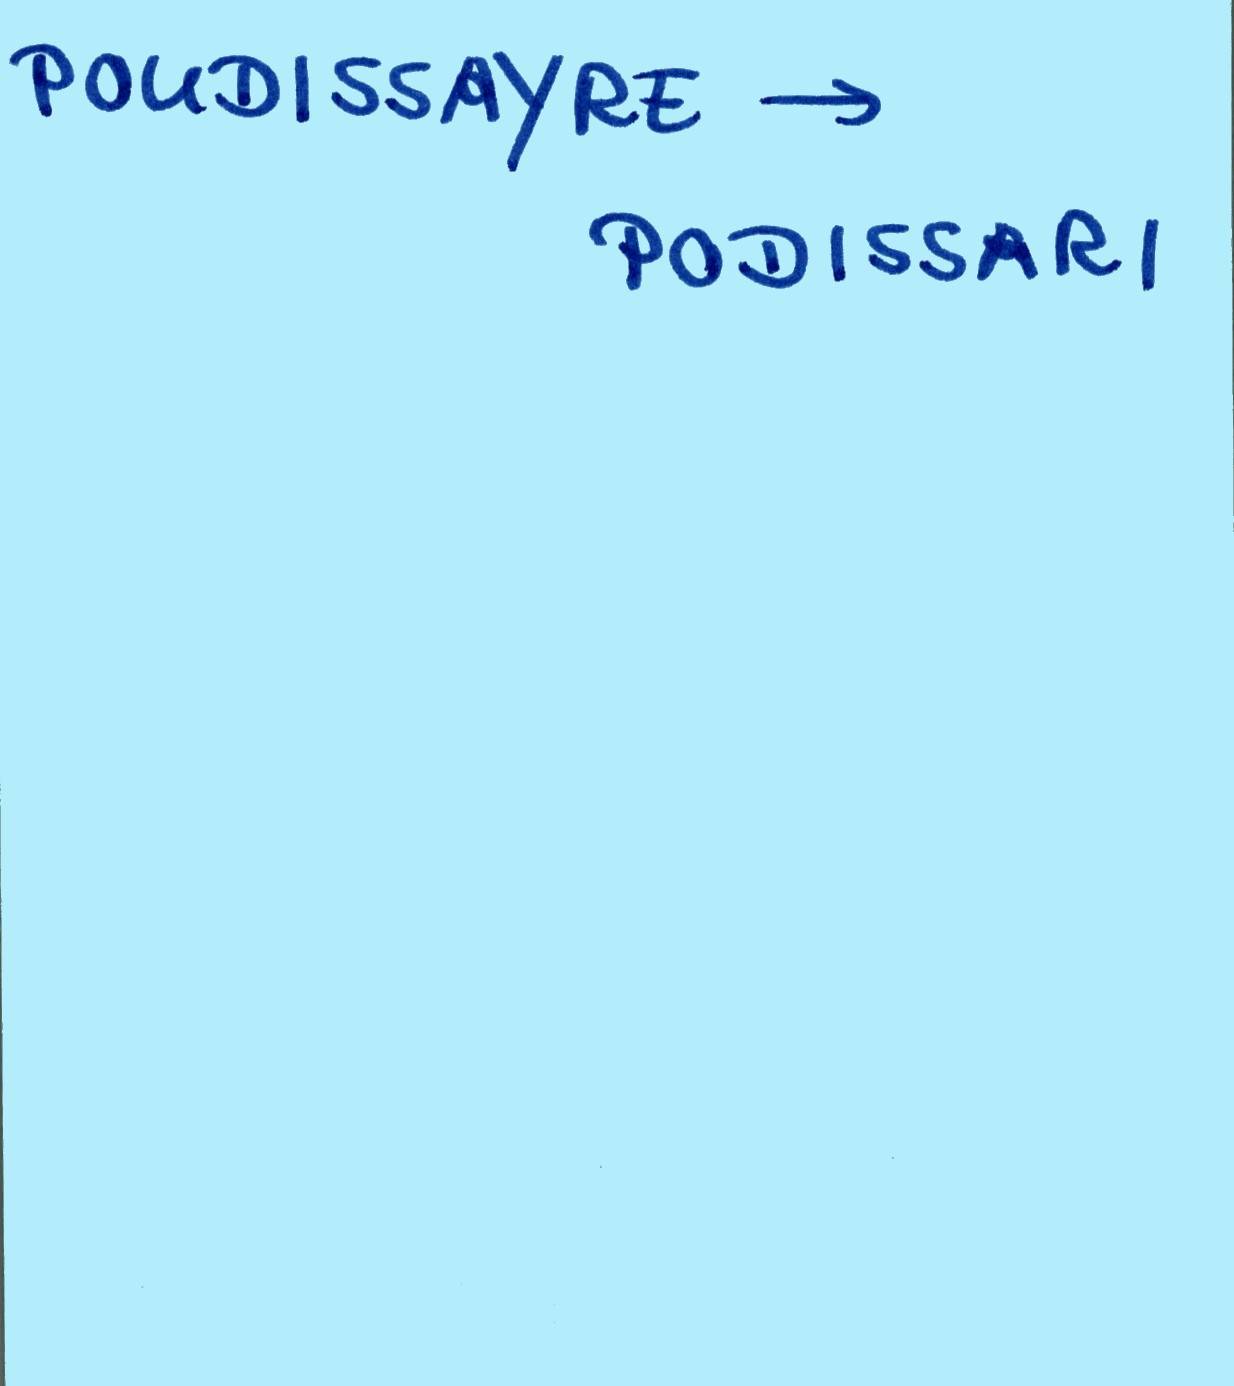 POUDISSAYRE →
PODISSARI